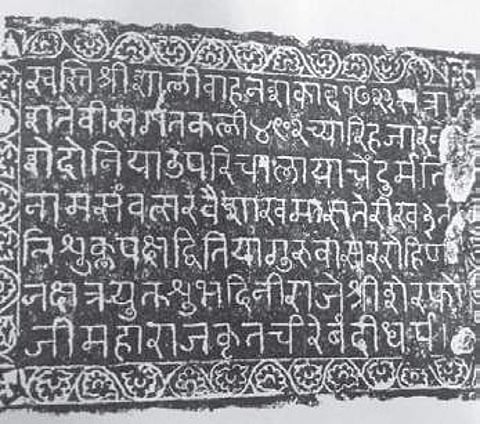 स्वस्ति श्री शालीवाहन शकाब्द १७२३
शते वीस कली च्यारि हजार
शे दोनि या उपरि चालायाचे दुर्मति
नाम संवत्सर वैशाख मास तेरीख
नि शुक्लपक्ष द्वितिया गुरुवासर रोहिणि
नक्षत्र युक्त शुभदिनी राजे श्री शेरफो
जी महाराज कृत चीरेबंदी